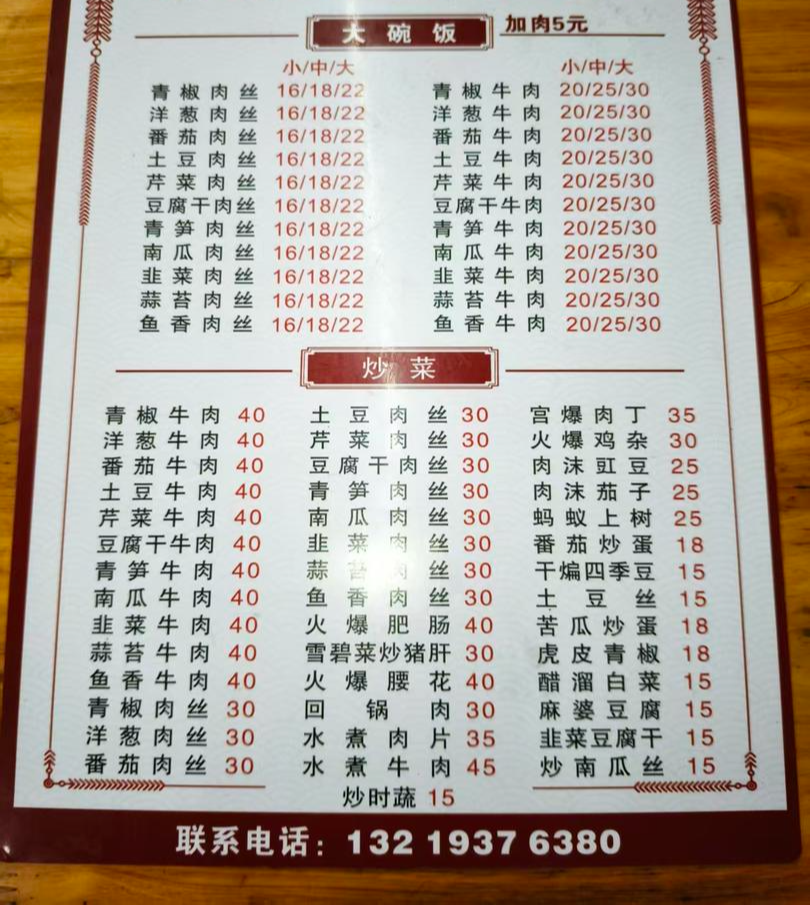 大碗饭 加肉5元
小/中/大 小/中/大
青椒肉丝 16/18/22 青椒牛肉 20/25/30
洋葱肉丝 16/18/22 洋葱牛肉 20/25/30
番茄肉丝 16/18/22 番茄牛肉 20/25/30
土豆肉丝 16/18/22 土豆牛肉 20/25/30
芹菜肉丝 16/18/22 芹菜牛肉 20/25/30
豆腐干肉丝 16/18/22 豆腐干牛肉 20/25/30
青笋肉丝 16/18/22 青笋牛肉 20/25/30
南瓜肉丝 16/18/22 南瓜牛肉 20/25/30
韭菜肉丝 16/18/22 韭菜牛肉 20/25/30
蒜苔肉丝 16/18/22 蒜苔牛肉 20/25/30
鱼香肉丝 16/18/22 鱼香牛肉 20/25/30
炒菜
青椒牛肉 40 土豆肉丝 30 宫爆肉丁 35
洋葱牛肉 40 芹菜肉丝 30 火爆鸡杂 30
番茄牛肉 40 豆腐干肉丝 30 肉沫豇豆 25
土豆牛肉 40 青笋肉丝 30 肉沫茄子 25
芹菜牛肉 40 南瓜肉丝 30 蚂蚁上树 25
豆腐干牛肉 40 韭菜肉丝 30 番茄炒蛋 18
青笋牛肉 40 蒜苔肉丝 30 干煸四季豆 15
南瓜牛肉 40 鱼香肉丝 30 土豆丝 15
韭菜牛肉 40 火爆肥肠 40 苦瓜炒蛋 18
蒜苔牛肉 40 雪碧菜炒猪肝 30 虎皮青椒 18
鱼香牛肉 40 火爆腰花 40 醋溜白菜 15
青椒肉丝 30 回锅肉 30 麻婆豆腐 15
洋葱肉丝 30 水煮肉片 35 韭菜豆腐干 15
番茄肉丝 30 水煮牛肉 45 炒南瓜丝 15
炒时蔬 15
联系电话：132 1937 6380